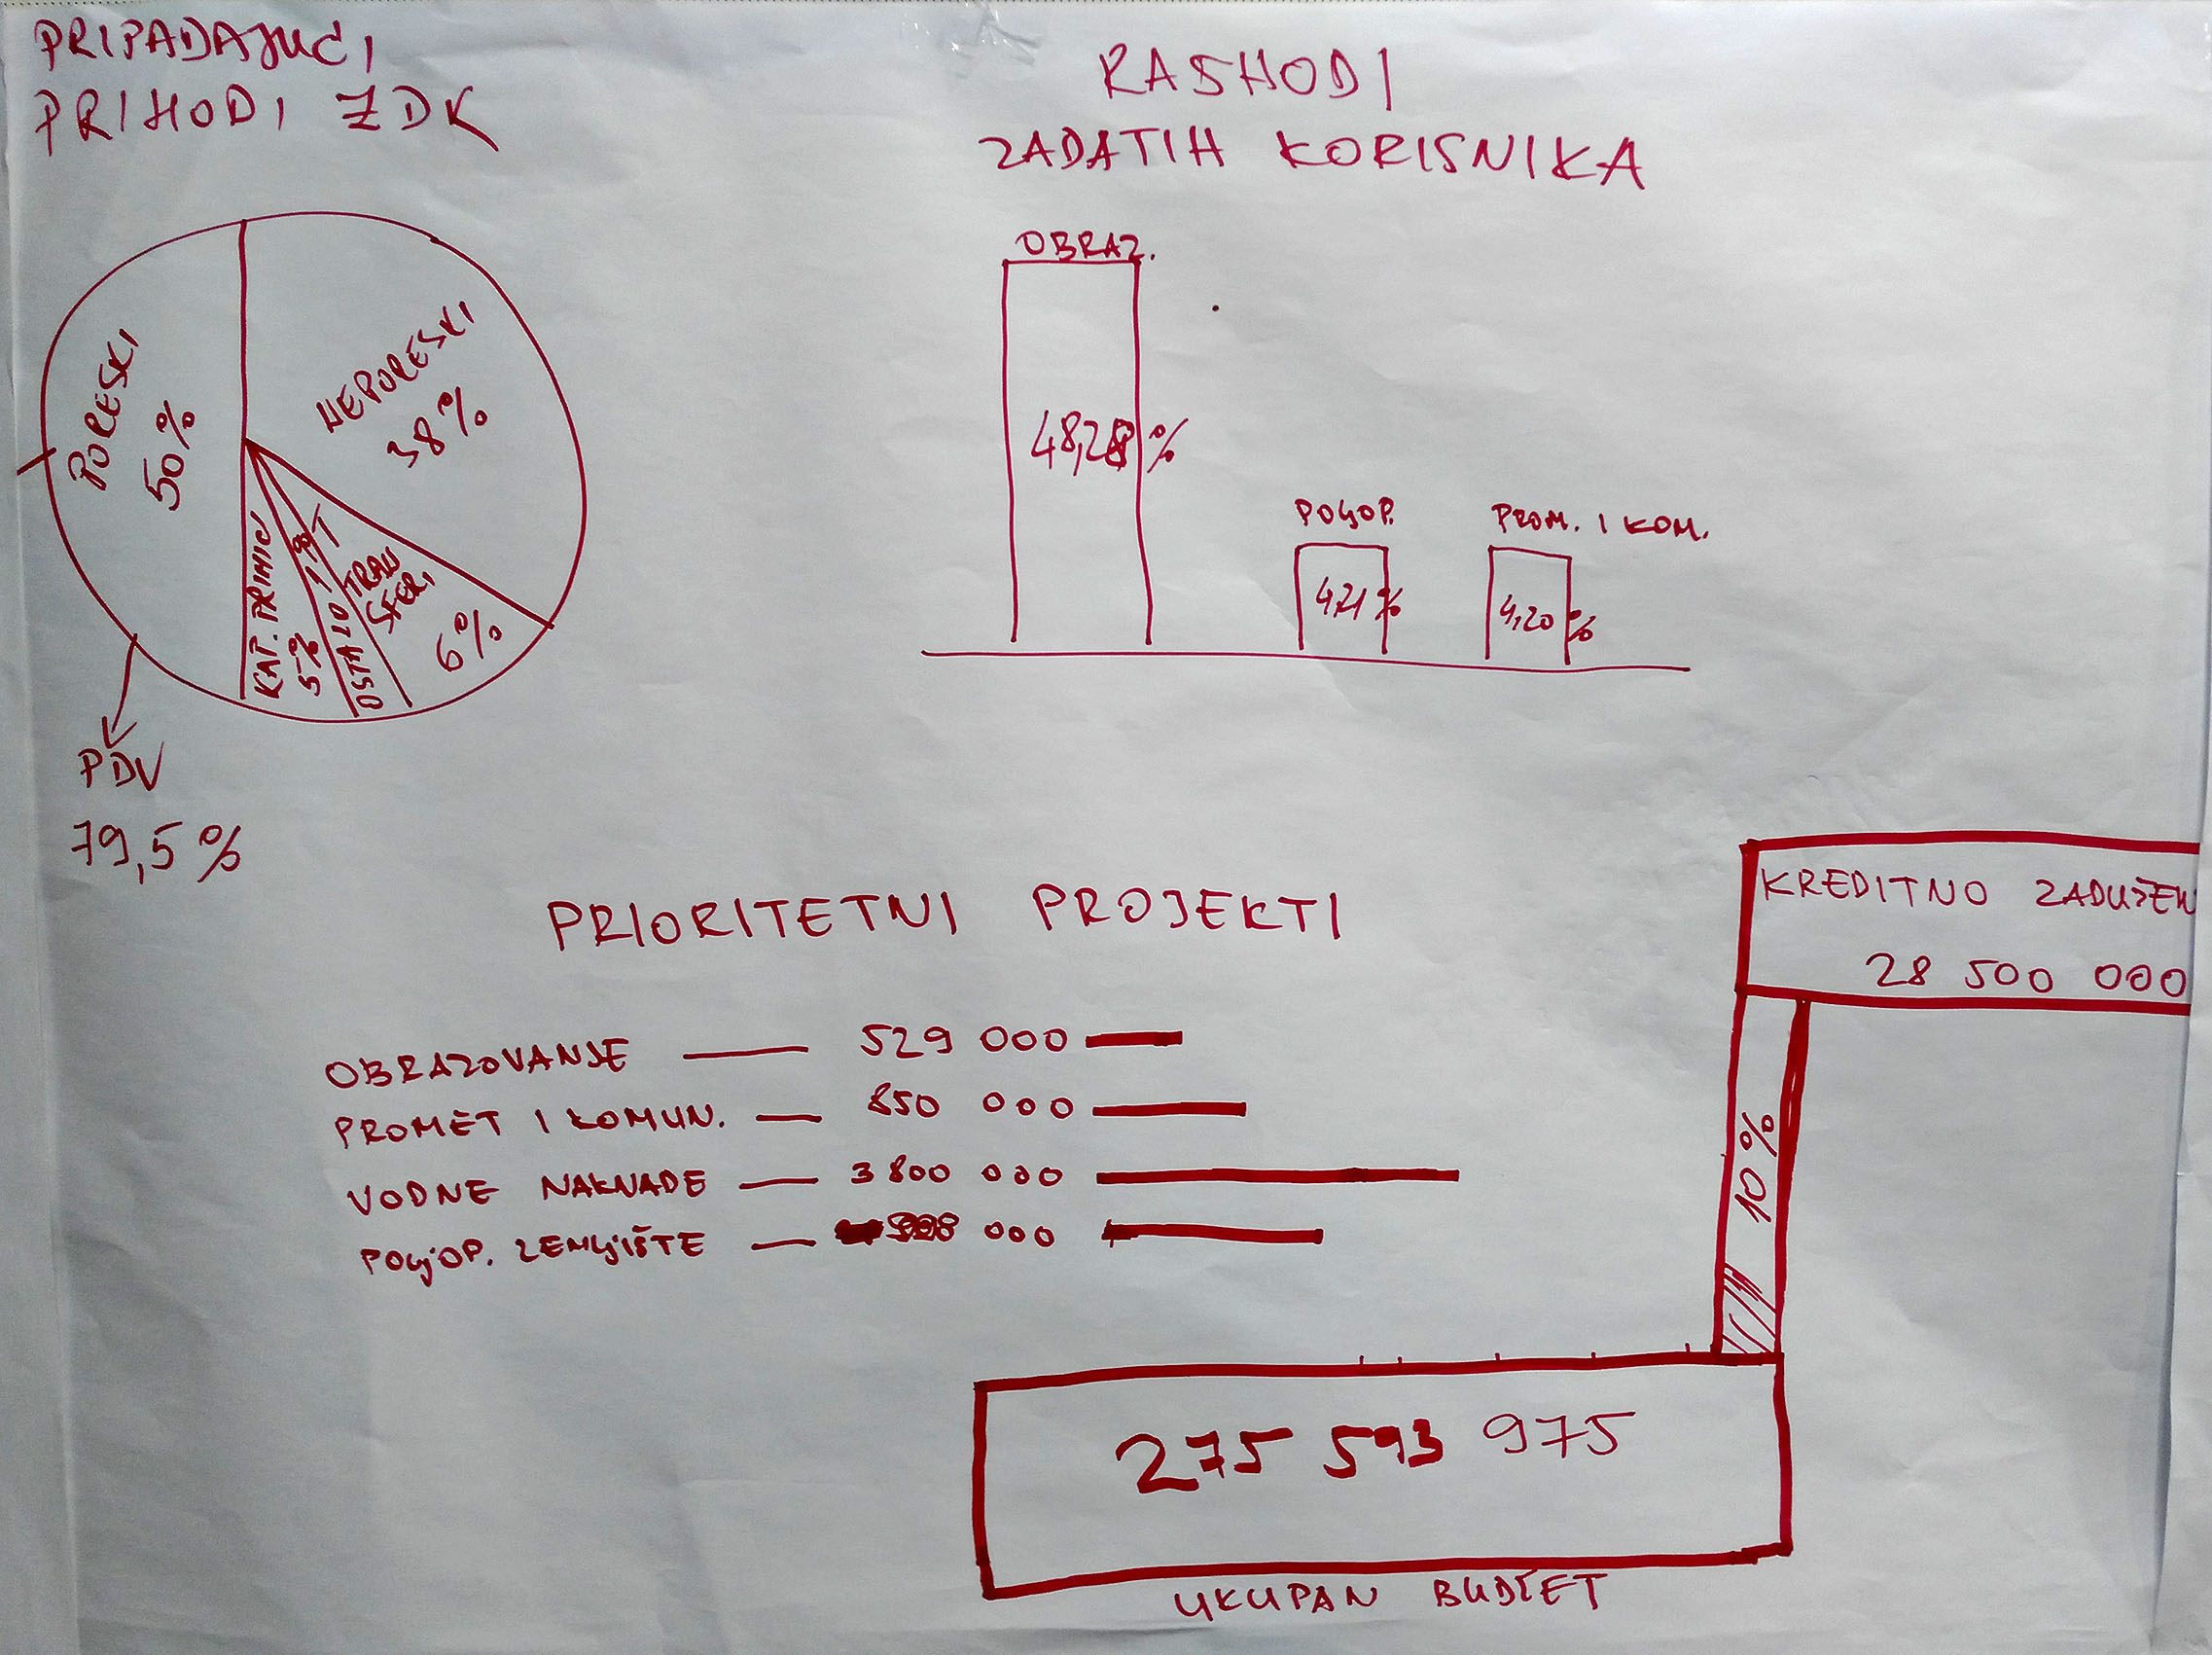 PRIPADAJUĆI
PRIHODI ZDK
PORESKI
50%
NEPORESKI
38%
KAP. PRIMIC
5%
OSTALO 1%
TRAN
SFERI
6%
PDV
79,5%
RASHODI
ZADATIH KORISNIKA
OBRAZ.
48,28%
POLJOP.
4,21%
PROM. I KOM.
4,20%
PRIORITETNI PROJEKTI
OBRAZOVANJE — 529 000
PROMET I KOMUN. — 850 000
VODNE NAKNADE — 3 800 000
POLJOP. ZEMLJIŠTE — 000
KREDITNO ZADUŽEN
28 500 000
10%
275 593 975
UKUPAN BUDŽET